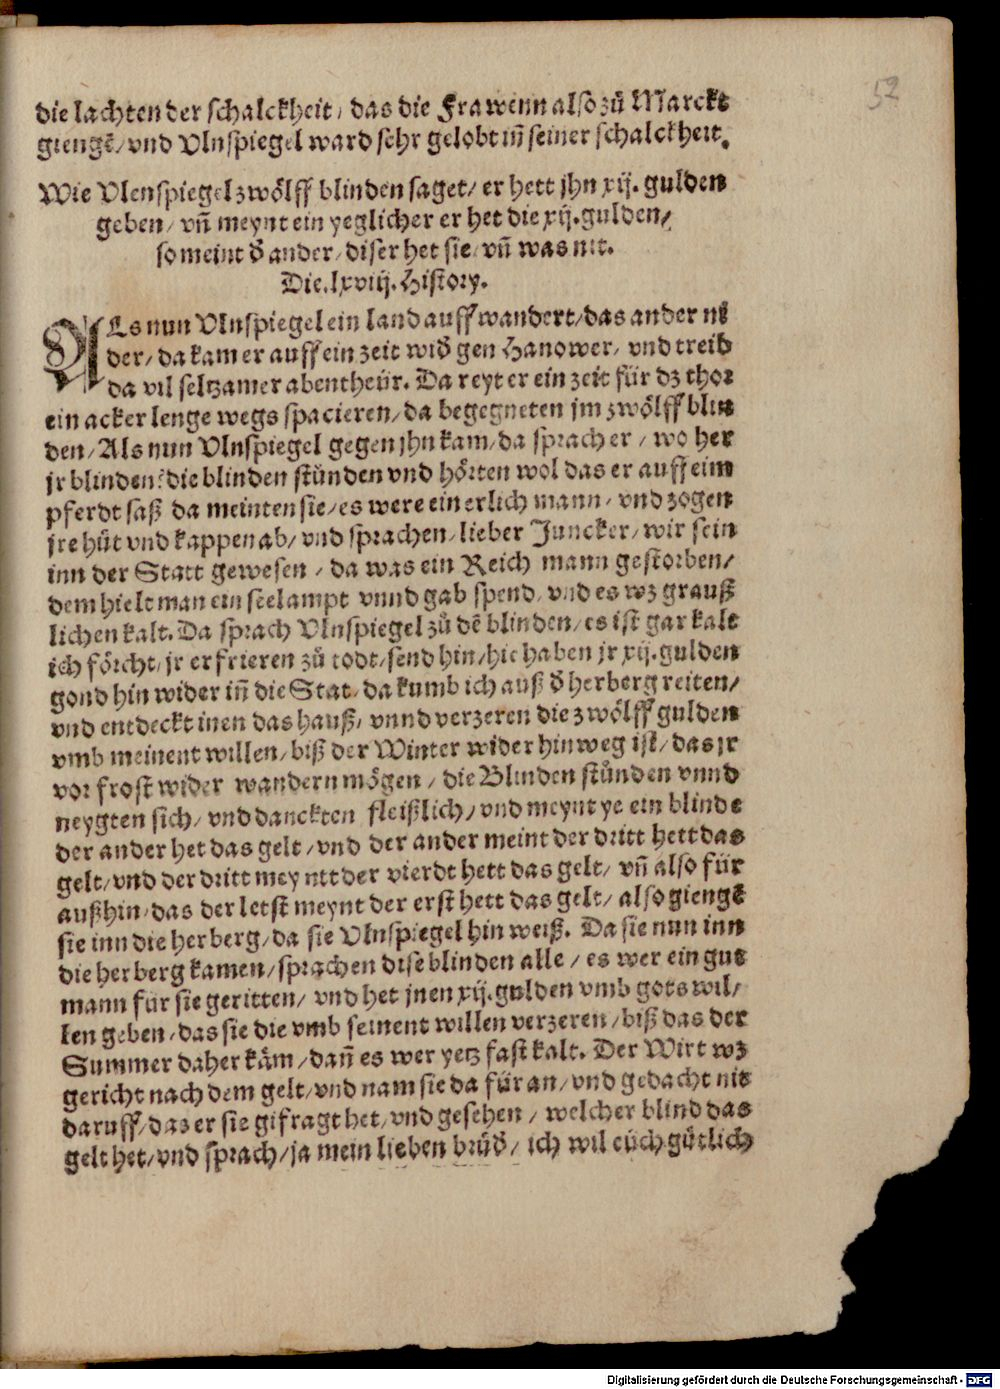 52
die lachten der schalckheit / das die Frawenn also zů Marckt
giengē / vnd Vlnspiegel ward sehr gelobt iñ seiner schalckheit.
Wie Vlenspiegel zwölff blinden saget / er hett jhn xij. gulden
geben / vñ meynt ein yeglicher er het die xij. gulden /
so meint d̄ ander / diser het sie / vñ was nit.
Die. lxviij. History.
ALs nun Vlnspiegel ein land auff wandert / das ander ni
der / da kam er auff ein zeit wid̄ gen Hanower / vnd treib
da vil seltzamer abentheür. Da reyt er ein zeit für dz thor
ein acker lenge wegs spacieren / da begegneten jm zwölff blin
den / Als nun Vlnspiegel gegen jhn kam / da sprach er / wo her
jr blinden? die blinden stůnden vnd hörten wol das er auff eim
pferdt saß da meinten sie / es were ein erlich mann / vnd zogen
jre hüt vnd kappen ab / vnd sprachen / lieber Juncker / wir sein
inn der Statt gewesen / da was ein Reich mann gestorben /
dem hielt man ein seelampt vnnd gab spend / vnd es wz grauß
lichen kalt. Da sprach Vlnspiegel zů dē blinden / es ist gar kalt
ich förcht / jr erfrieren zů todt / send hin / hie haben jr xij. gulden
gond hin wider iñ die Stat / da kumb ich auß d̄ herberg reiten /
vnd entdeckt inen das hauß / vnnd verzeren die zwölff gulden
vmb meinent willen / biß der Winter wider hinweg ist / das jr
vor frost wider wandern mögen / die Blinden stůnden vnnd
neygten sich / vnd danckten fleißlich / vnd meynt ye ein blinde
der ander het das gelt / vnd der ander meint der dritt hett das
gelt / vnd der dritt meyntt der vierdt hett das gelt / vñ also für
außhin / das der letst meynt der erst hett das gelt / also giengē
sie inn die herberg / da sie Vlnspiegel hin weiß. Da sie nun inn
die herberg kamen / sprachen dise blinden alle / es wer ein gut
mann für sie geritten / vnd het jnen xij. gulden vmb gots wil /
len geben / das sie die vmb seinent willen verzeren / biß das der
Summer daher käm / dañ es wer yetz fast kalt. Der Wirt wz
gericht nach dem gelt / vnd nam sie da für an / vnd gedacht nit
daruff / das er sie gifragt het / vnd gesehen / welcher blind das
gelt het / vnd sprach / ja mein lieben brüd̄ / ich wil eüch gütlich
Digitalisierung gefördert durch die Deutsche Forschungsgemeinschaft - DFG